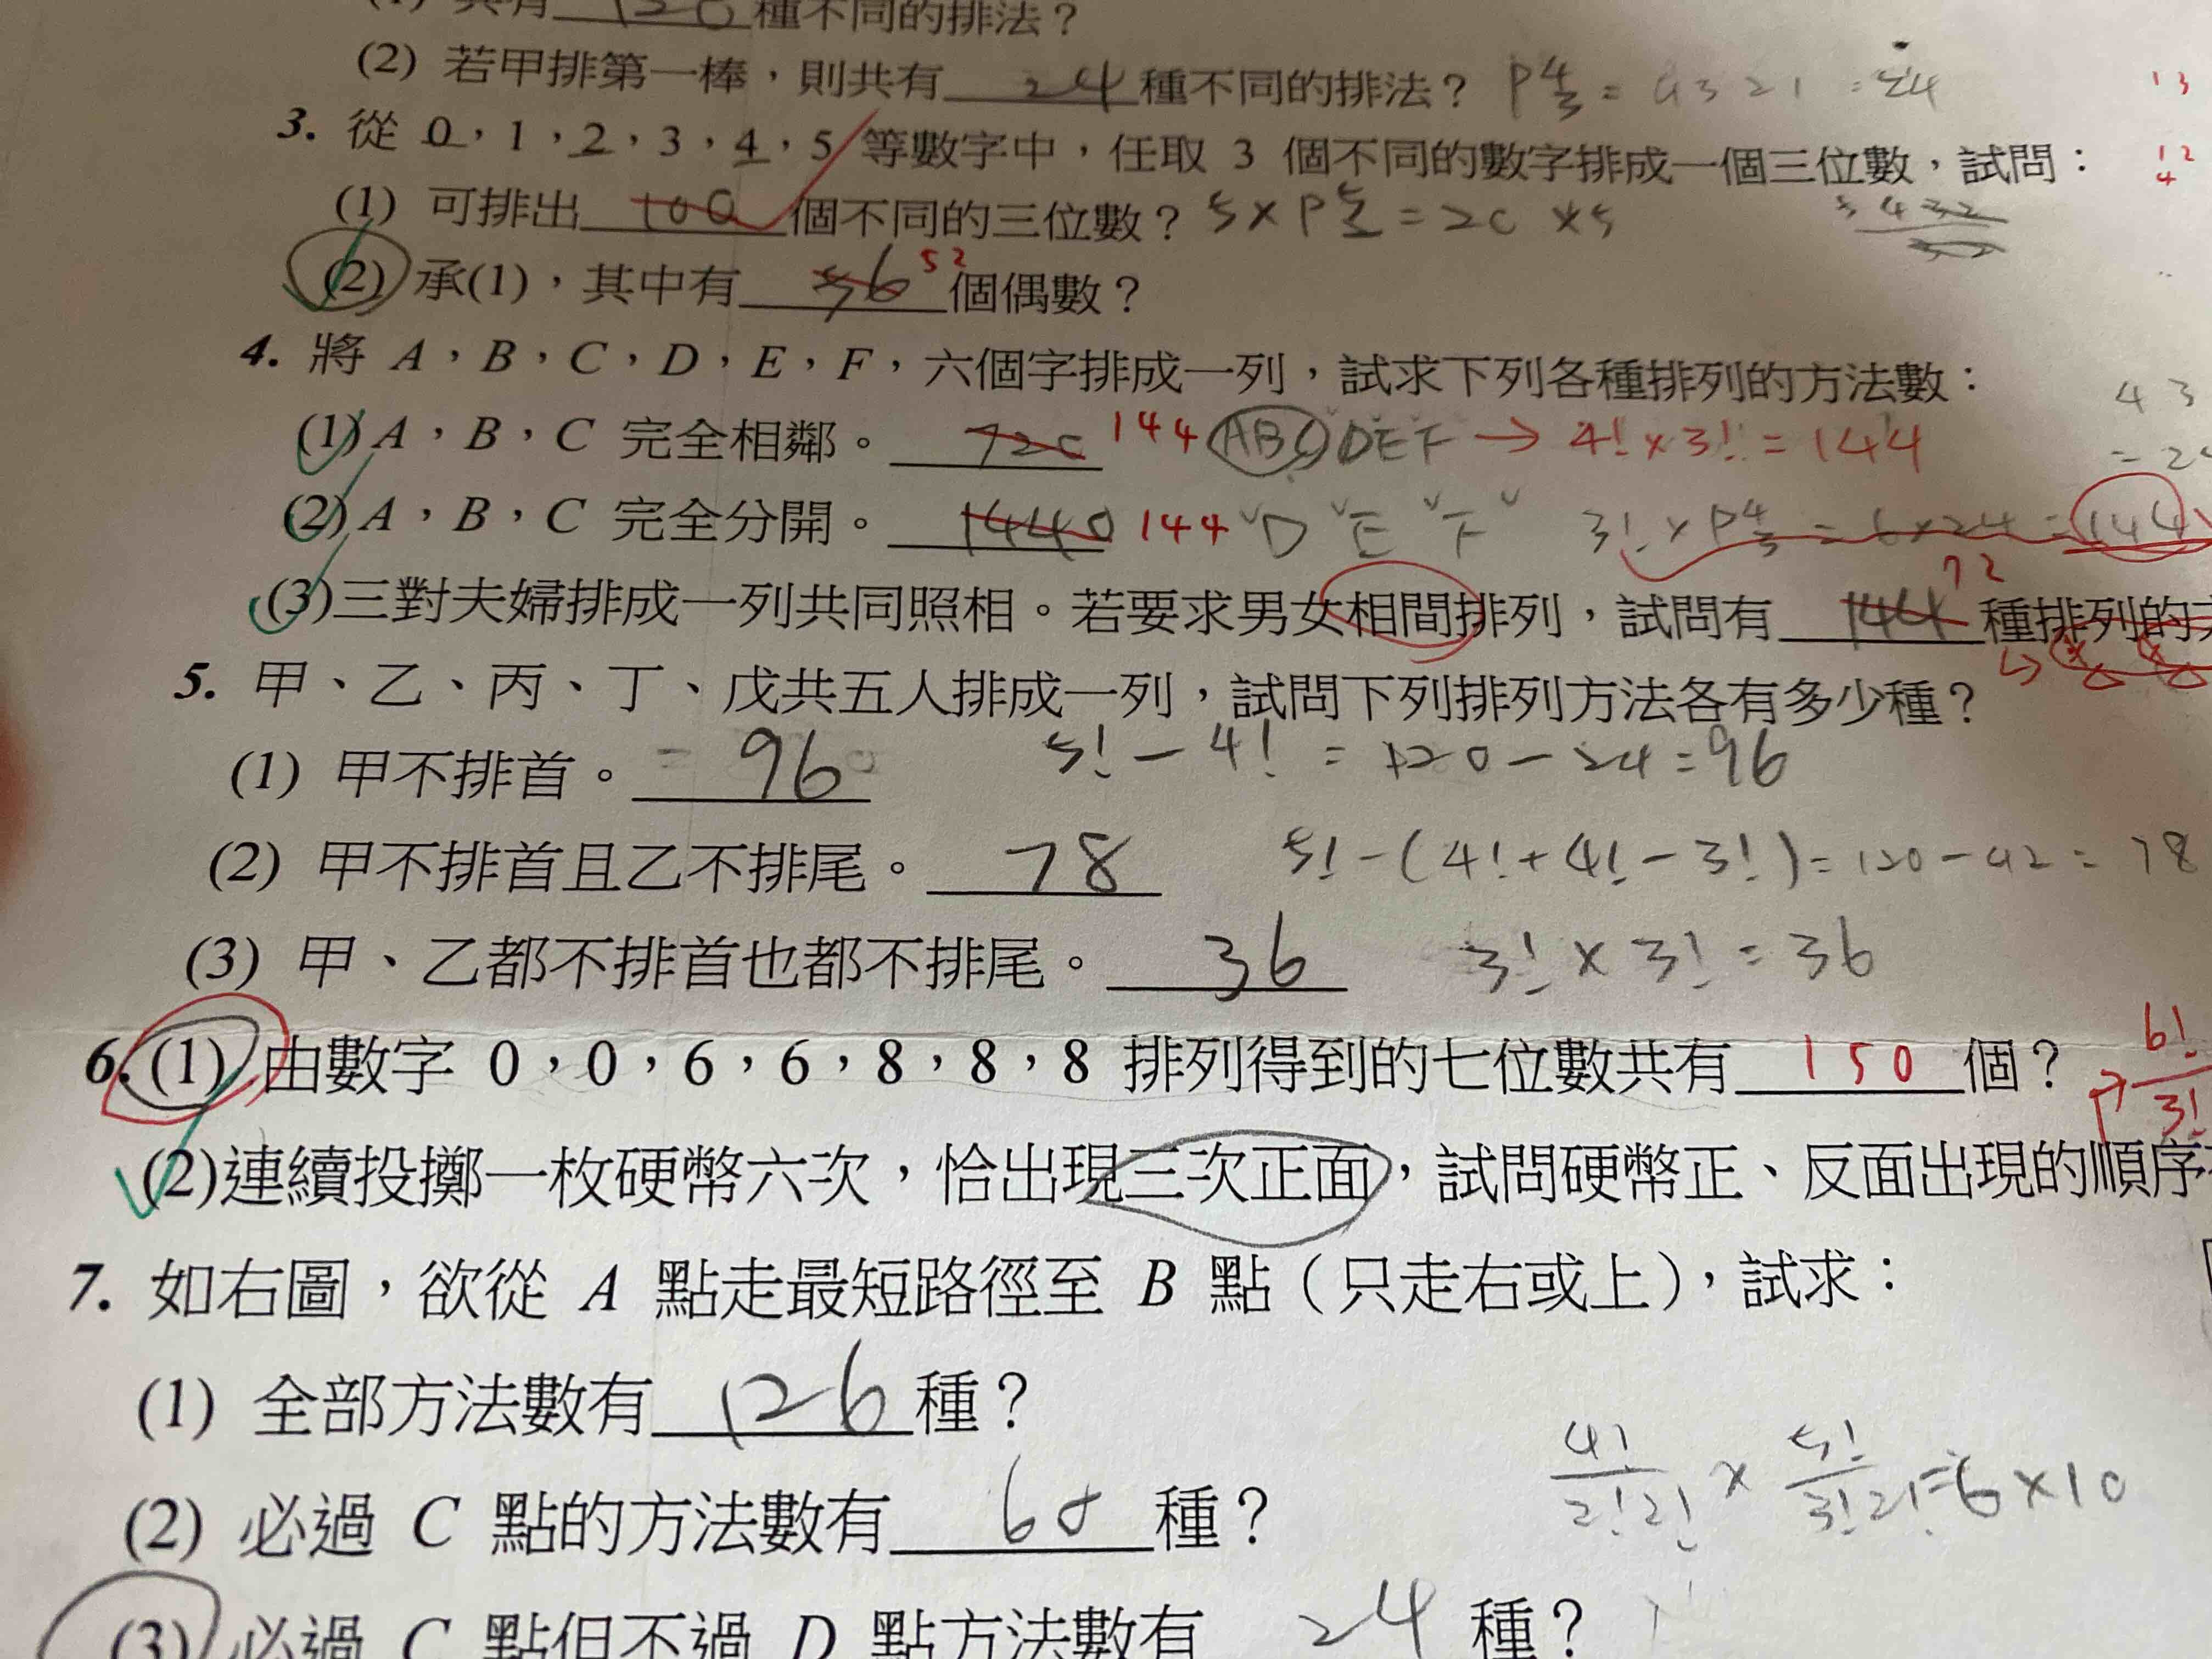 種不同的排法？
(2) 若甲排第一棒，則共有 24 種不同的排法？ P⁴₃ = 4321 = 24 13
3. 從 0，1，2，3，4，5 等數字中，任取 3 個不同的數字排成一個三位數，試問： 12 4
(1) 可排出 100 個不同的三位數？ 5×P⁵₂ = 20 ×5
(2) 承(1)，其中有 56 52 個偶數？
4. 將 A，B，C，D，E，F，六個字排成一列，試求下列各種排列的方法數： 43
(1) A，B，C 完全相鄰。 720 144 ABC DEF → 4!×3! = 144
(2) A，B，C 完全分開。 1440 144 ˇDˇEˇFˇ 3!×P⁴₃ = 6×24 = 144
(3) 三對夫婦排成一列共同照相。若要求男女相間排列，試問有 144 72 種排列的
5. 甲、乙、丙、丁、戊共五人排成一列，試問下列排列方法各有多少種？
(1) 甲不排首。 = 96 5! - 4! = 120 - 24 = 96
(2) 甲不排首且乙不排尾。 78 5! - (4! + 4! - 3!) = 120 - 42 = 78
(3) 甲、乙都不排首也都不排尾。 36 3! × 3! = 36
6. (1) 由數字 0，0，6，6，8，8，8 排列得到的七位數共有 150 個？ → 6! / 3!
(2) 連續投擲一枚硬幣六次，恰出現三次正面，試問硬幣正、反面出現的順序
7. 如右圖，欲從 A 點走最短路徑至 B 點（只走右或上），試求：
(1) 全部方法數有 126 種？
(2) 必過 C 點的方法數有 60 種？ 4!/2!2! × 5!/3!2! = 6×10
(3) 必過 C 點但不過 D 點方法數有 24 種？